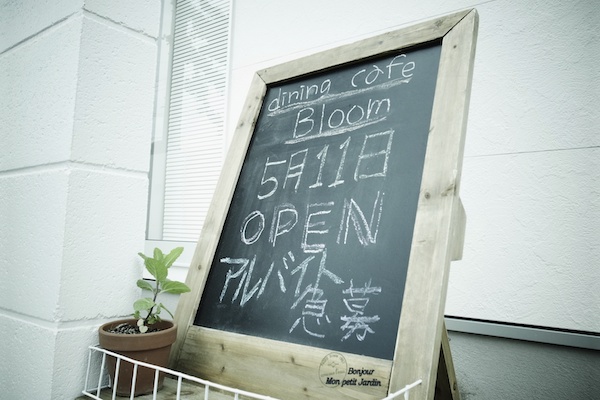 dining cafe
Bloom
5月11日
OPEN
アルバイト
急募
Bonjour
Mon petit Jardin